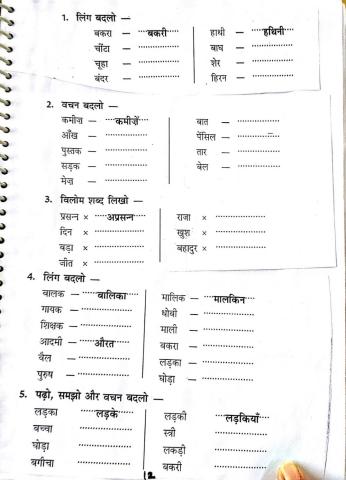 1. लिंग बदलो —
बकरा — बकरी    हाथी — हथिनी
चींटा —    बाघ —
चूहा —    शेर —
बंदर —    हिरन —
2. वचन बदलो —
कमीज़ — कमीज़ें    बात —
आँख —    पेंसिल —
पुस्तक —    तार —
सड़क —    बेल —
मेज़ —
3. विलोम शब्द लिखो —
प्रसन्न × अप्रसन्न    राजा ×
दिन ×    खुश ×
बड़ा ×    बहादुर ×
जीत ×
4. लिंग बदलो —
बालक — बालिका    मालिक — मालकिन
गायक —    धोबी —
शिक्षक —    माली —
आदमी — औरत    बकरा —
बैल —    लड़का —
पुरुष —    घोड़ा —
5. पढ़ो, समझो और वचन बदलो —
लड़का लड़के    लड़की लड़कियाँ
बच्चा    स्त्री
घोड़ा    लकड़ी
बगीचा    बकरी
12